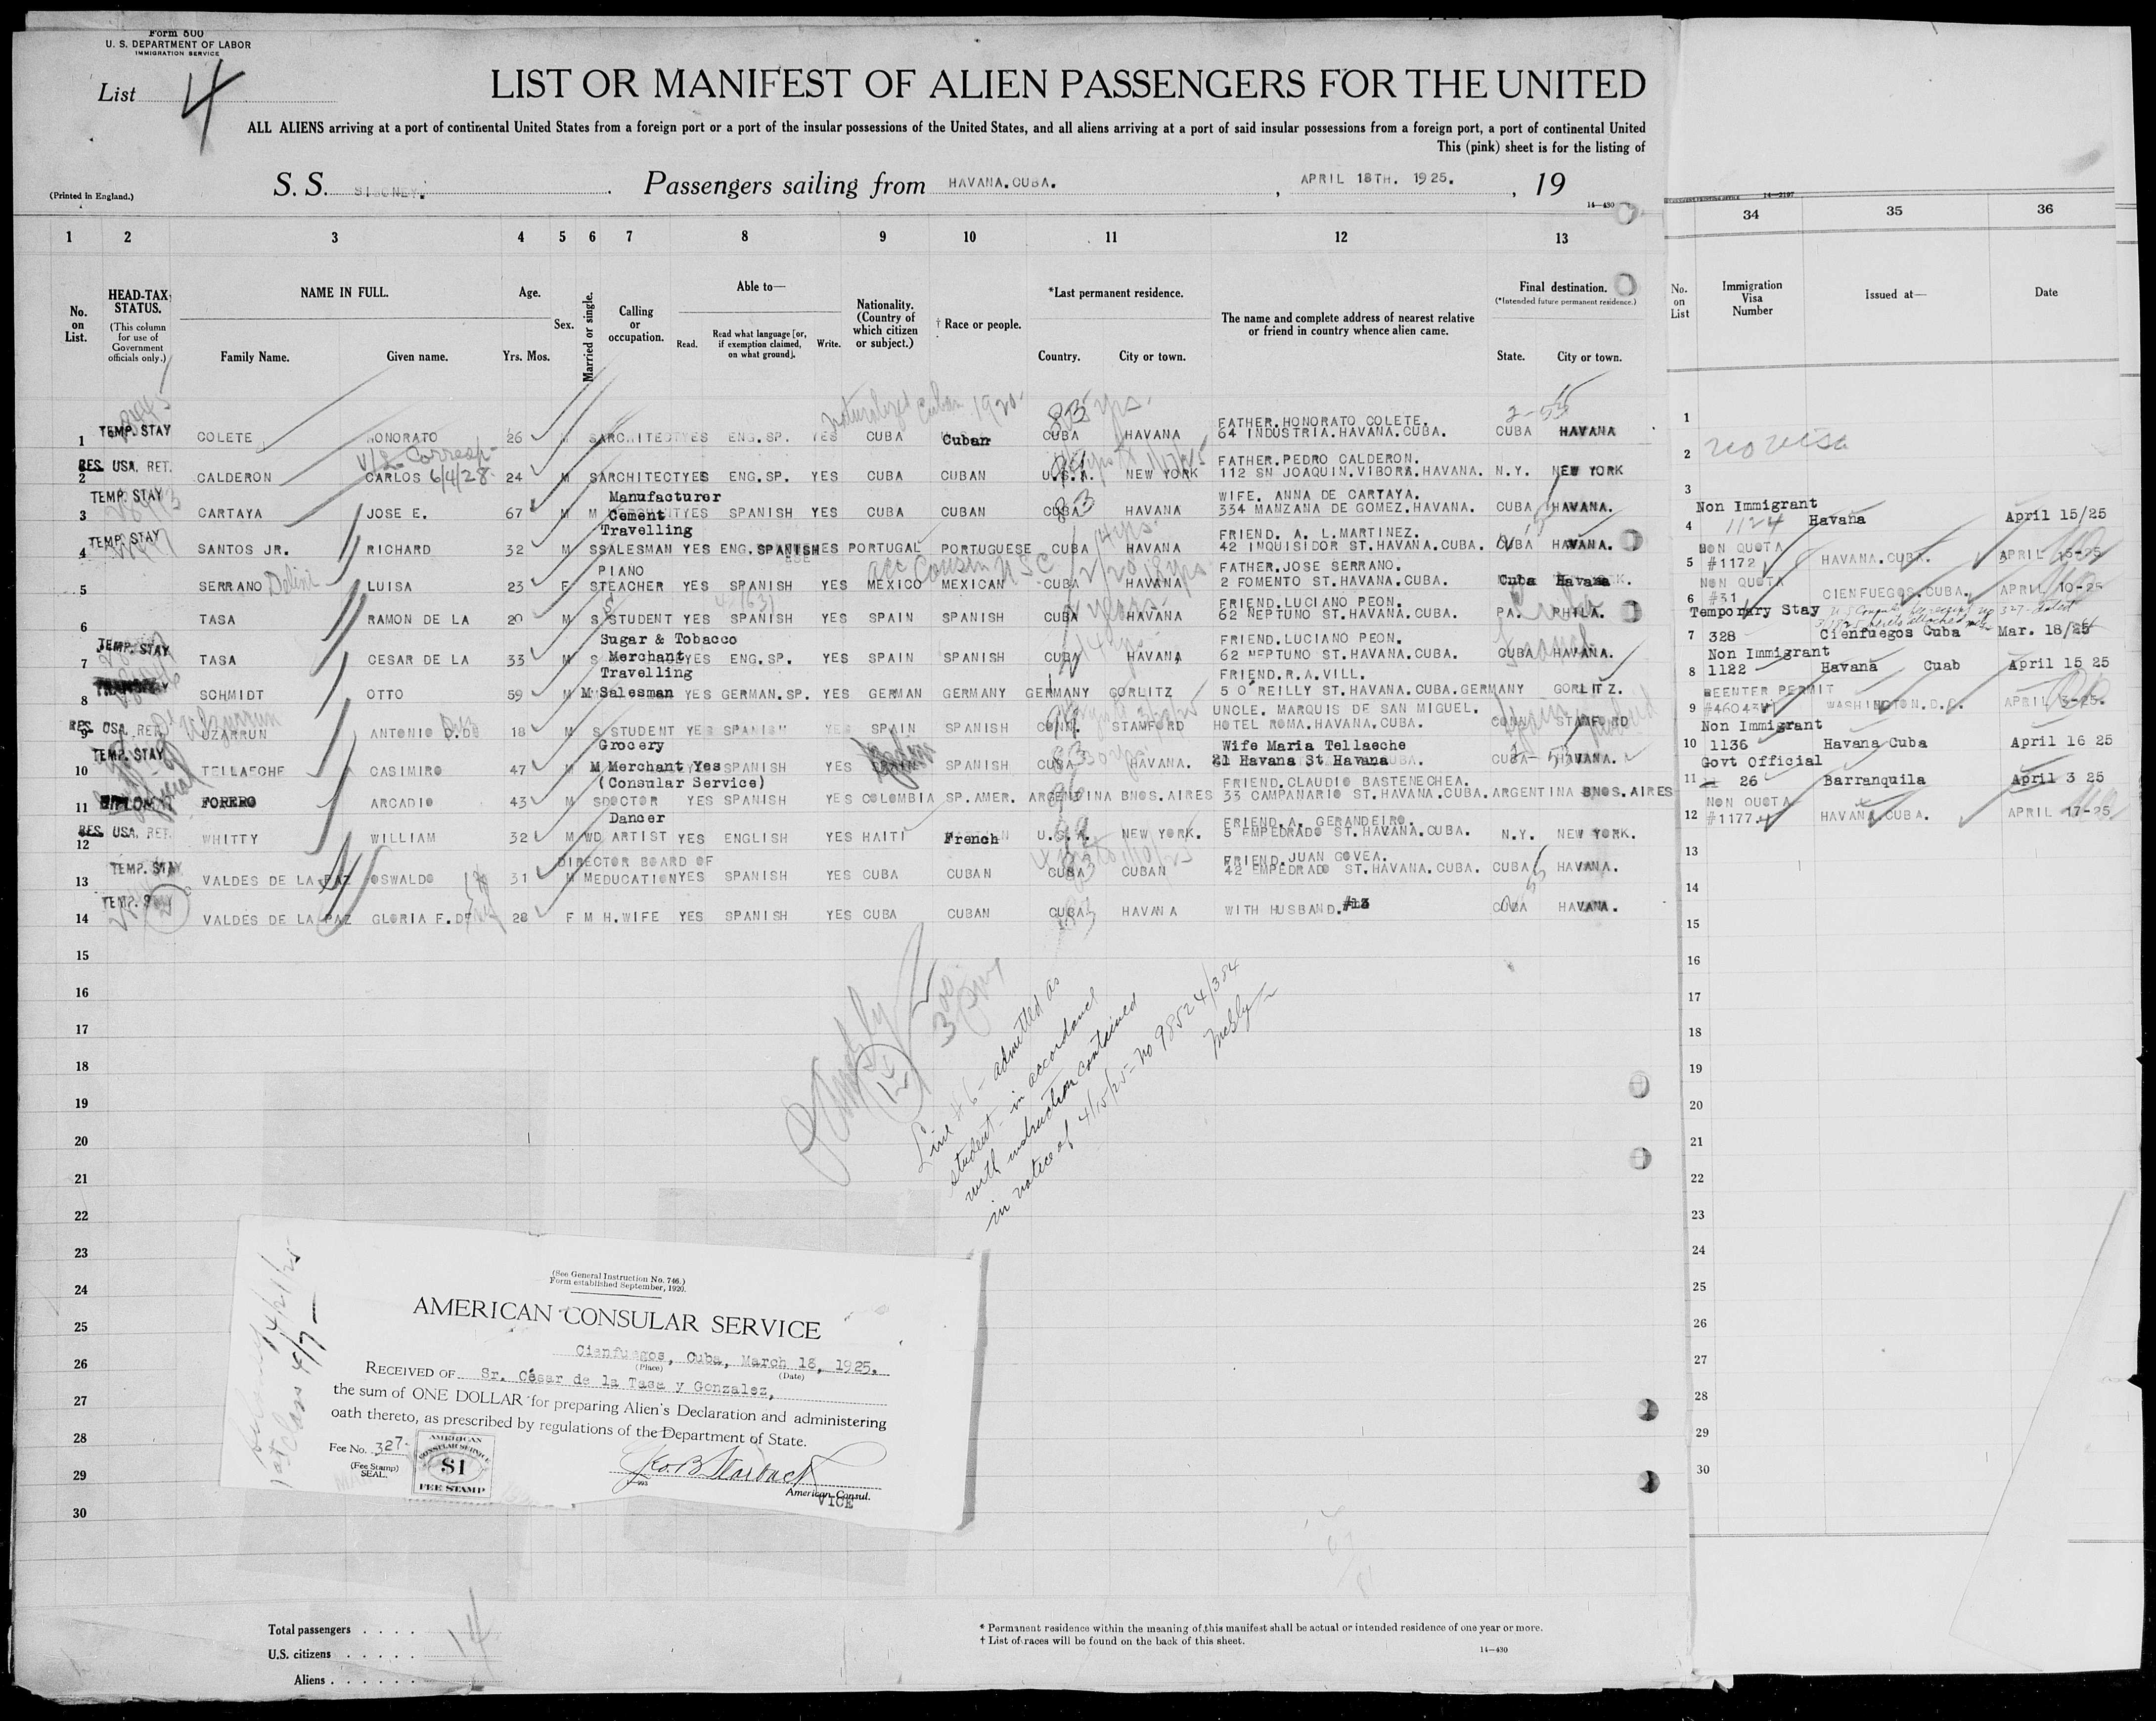 Form 500
U. S. DEPARTMENT OF LABOR
IMMIGRATION SERVICE
List 4
LIST OR MANIFEST OF ALIEN PASSENGERS FOR THE UNITED
ALL ALIENS arriving at a port of continental United States from a foreign port or a port of the insular possessions of the United States, and all aliens arriving at a port of said insular possessions from a foreign port, a port of continental United
This (pink) sheet is for the listing of
(Printed in England.)
S. S. SIBONEY. Passengers sailing from HAVANA.CUBA. , APRIL 18TH. 1925. , 19
14—430
1 2 3 4 5 6 7 8 9 10 11 12 13
No. on List.
HEAD-TAX STATUS.
(This column for use of Government officials only.)
NAME IN FULL.
Family Name. Given name.
Age.
Yrs. Mos.
Sex.
Married or single.
Calling or occupation.
Able to—
Read. Read what language [or, if exemption claimed, on what ground]. Write.
Nationality. (Country of which citizen or subject.)
† Race or people.
*Last permanent residence.
Country. City or town.
The name and complete address of nearest relative or friend in country whence alien came.
Final destination.
(*Intended future permanent residence.)
State. City or town.
naturalized Cuban 1920.
FATHER.HONORATO COLETE.
1 TEMP. STAY COLETE HONORATO 26 M S ARCHITECT YES ENG.SP. YES CUBA Cuban CUBA HAVANA 64 INDUSTRIA.HAVANA.CUBA. CUBA HAVANA
V/L Corresp- 6/4/28
FATHER.PEDRO CALDERON.
2 RES. USA. RET. CALDERON CARLOS 24 M S ARCHITECT YES ENG.SP. YES CUBA CUBAN U.S.A. NEW YORK 112 SN JOAQUIN.VIBORA.HAVANA. N.Y. NEW YORK
Manufacturer WIFE. ANNA DE CARTAYA.
3 TEMP. STAY CARTAYA JOSE E. 67 M M Cement YES SPANISH YES CUBA CUBAN CUBA HAVANA 334 MANZANA DE GOMEZ.HAVANA. CUBA HAVANA.
Travelling FRIEND. A. L.MARTINEZ.
4 TEMP. STAY SANTOS JR. RICHARD 32 M S SALESMAN YES ENG.SPANISH YES PORTUGAL PORTUGUESE CUBA HAVANA 42 INQUISIDOR ST.HAVANA.CUBA. CUBA HAVANA.
PIANO FATHER.JOSE SERRANO.
5 SERRANO LUISA 23 F S TEACHER YES SPANISH YES MEXICO MEXICAN CUBA HAVANA 2 FOMENTO ST.HAVANA.CUBA. Cuba Havana
FRIEND.LUCIANO PEON.
6 TASA RAMON DE LA 20 M S STUDENT YES SPANISH YES SPAIN SPANISH CUBA HAVANA 62 NEPTUNO ST.HAVANA.CUBA. PA. PHILA.
Sugar & Tobacco FRIEND.LUCIANO PEON.
7 TEMP. STAY TASA CESAR DE LA 33 M S Merchant YES ENG.SP. YES SPAIN SPANISH CUBA HAVANA 62 NEPTUNO ST.HAVANA.CUBA. CUBA HAVANA.
Travelling FRIEND.R.A.VILL.
8 SCHMIDT OTTO 59 M M Salesman YES GERMAN.SP. YES GERMAN GERMANY GERMANY GORLITZ 5 O'REILLY ST.HAVANA.CUBA. GERMANY GORLITZ.
UNCLE. MARQUIS DE SAN MIGUEL.
9 RES. USA. RET. UZARRUN ANTONIO D.D 18 M S STUDENT YES SPANISH YES SPAIN SPANISH CONN. STAMFORD HOTEL ROMA.HAVANA.CUBA. CONN. STAMFORD
Grocery Wife Maria Tellaeche
10 TEMP. STAY TELLAECHE CASIMIRO 47 M M Merchant Yes SPANISH YES SPAIN SPANISH CUBA HAVANA. 21 Havana St Havana CUBA HAVANA.
(Consular Service) FRIEND.CLAUDIO BASTENECHEA.
11 DIPLOMAT FORERO ARCADIO 43 M S DOCTOR YES SPANISH YES COLOMBIA SP.AMER. ARGENTINA BNOS.AIRES 33 CAMPANARIO ST.HAVANA.CUBA. ARGENTINA BNOS.AIRES
Dancer FRIEND.A. GERANDEIRO.
12 RES. USA. RET. WHITTY WILLIAM 32 M WD ARTIST YES ENGLISH YES HAITI French U.S.A. NEW YORK. 5 EMPEDRADO ST.HAVANA.CUBA. N.Y. NEW YORK.
DIRECTOR BOARD OF FRIEND.JUAN GOVEA.
13 TEMP. STAY VALDES DE LA PAZ OSWALDO 31 M M EDUCATION YES SPANISH YES CUBA CUBAN CUBA CUBAN 42 EMPEDRADO ST.HAVANA.CUBA. CUBA HAVANA.
14 TEMP. STAY VALDES DE LA PAZ GLORIA F.DE 28 F M H.WIFE YES SPANISH YES CUBA CUBAN CUBA HAVANA WITH HUSBAND.#13 CUBA HAVANA.
15
16
17
18
19
20
21
22
23
24
25
26
27
28
29
30
Line #6 - admitted as
student - in accordance
with instruction contained
in notice of 4/15/25 - No 98524/384
(See General Instruction No. 746.)
Form established September, 1920.
AMERICAN CONSULAR SERVICE
Cienfuegos, Cuba, March 18, 1925.
(Place) (Date)
RECEIVED OF Sr. César de la Tasa y Gonzalez,
the sum of ONE DOLLAR for preparing Alien's Declaration and administering
oath thereto, as prescribed by regulations of the Department of State.
Fee No. 327
(Fee Stamp)
SEAL.
AMERICAN CONSULAR SERVICE
$1
FEE STAMP
American Consul.
VICE
Total passengers . . . . 14
U.S. citizens . . . . .
Aliens . . . . . .
* Permanent residence within the meaning of this manifest shall be actual or intended residence of one year or more.
† List of races will be found on the back of this sheet.
14—430
14—2197
34 35 36
No. on List
Immigration Visa Number
Issued at—
Date
1
2 no visa
3
Non Immigrant
4 1124 Havana April 15/25
NON QUOTA
5 #1172 HAVANA.CUBA. APRIL 15-25
NON QUOTA
6 #31 CIENFUEGOS.CUBA. APRIL 10-25
Temporary Stay
7 328 Cienfuegos Cuba Mar. 18/25
Non Immigrant
8 1122 Havana Cuab April 15 25
REENTER PERMIT
9 #46043 WASHINGTON.D.C. APRIL 3-25.
Non Immigrant
10 1136 Havana Cuba April 16 25
Govt Official
11 26 Barranquila April 3 25
NON QUOTA
12 #1177 HAVANA.CUBA. APRIL 17-25
13
14
15
16
17
18
19
20
21
22
23
24
25
26
27
28
29
30